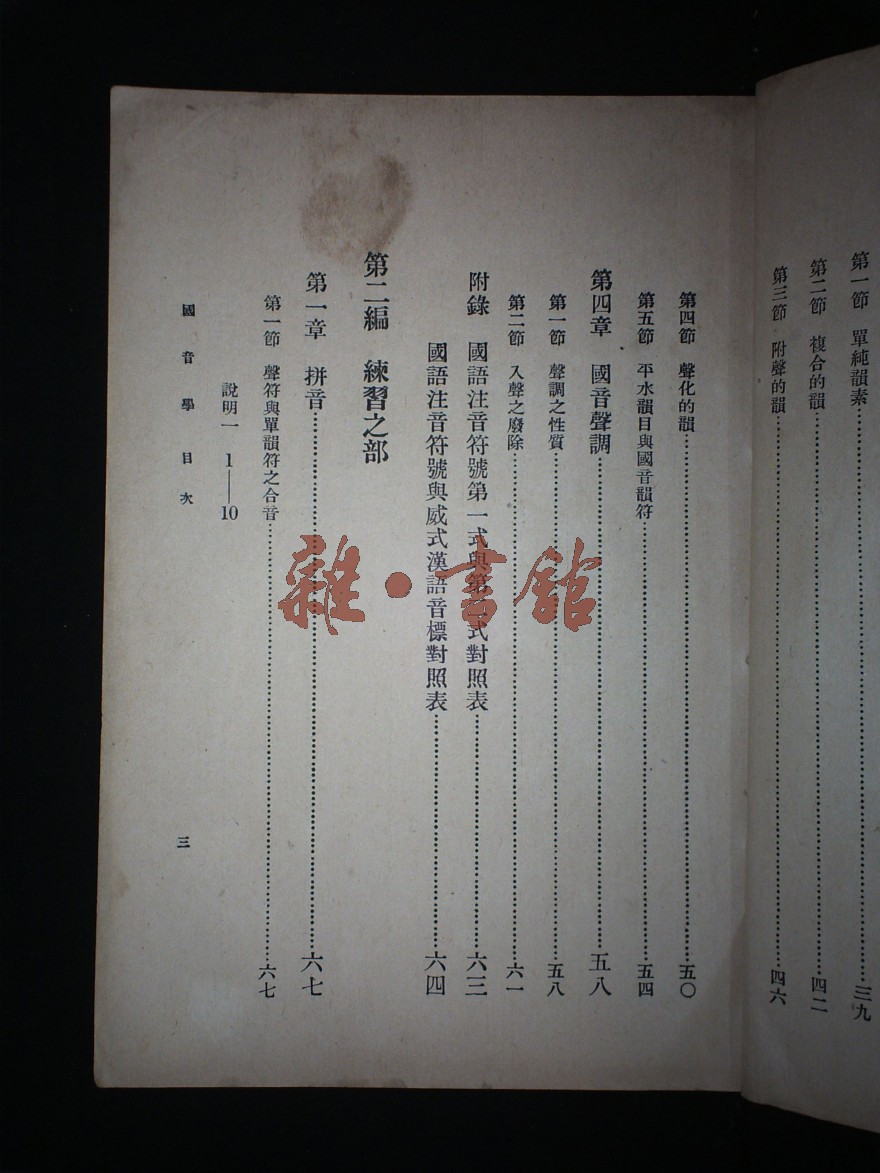 第一節 單純韻素………三九
第二節 複合的韻………四二
第三節 附聲的韻………四六
第四節 聲化的韻………五〇
第五節 平水韻目與國音韻符………五四
第四章 國音聲調………五八
第一節 聲調之性質………五八
第二節 入聲之廢除………六一
附錄 國語注音符號第一式與第二式對照表………六三
國語注音符號與威式漢語音標對照表………六四
第二編 練習之部
第一章 拼音………六七
第一節 聲符與單韻符之合音………六七
說明一 1——10
國音學 目次 三
雜·書館